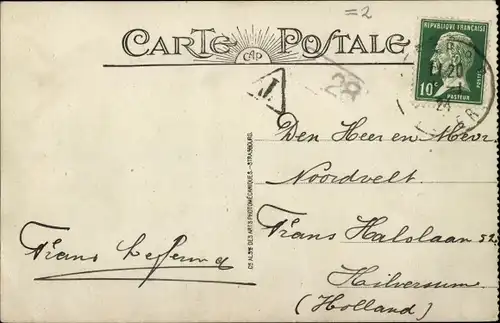 =2
CARTE POSTALE
CAP
RÉPUBLIQUE FRANÇAISE
POSTES
10c
PASTEUR
T
28
11 20
Den Heer en Mevr
Noordvelt
Frans Halslaan 52
Hilversum
(Holland)
CIE ALSNE DES ARTS PHOTOMÉCANIQUES - STRASBOURG
Frans